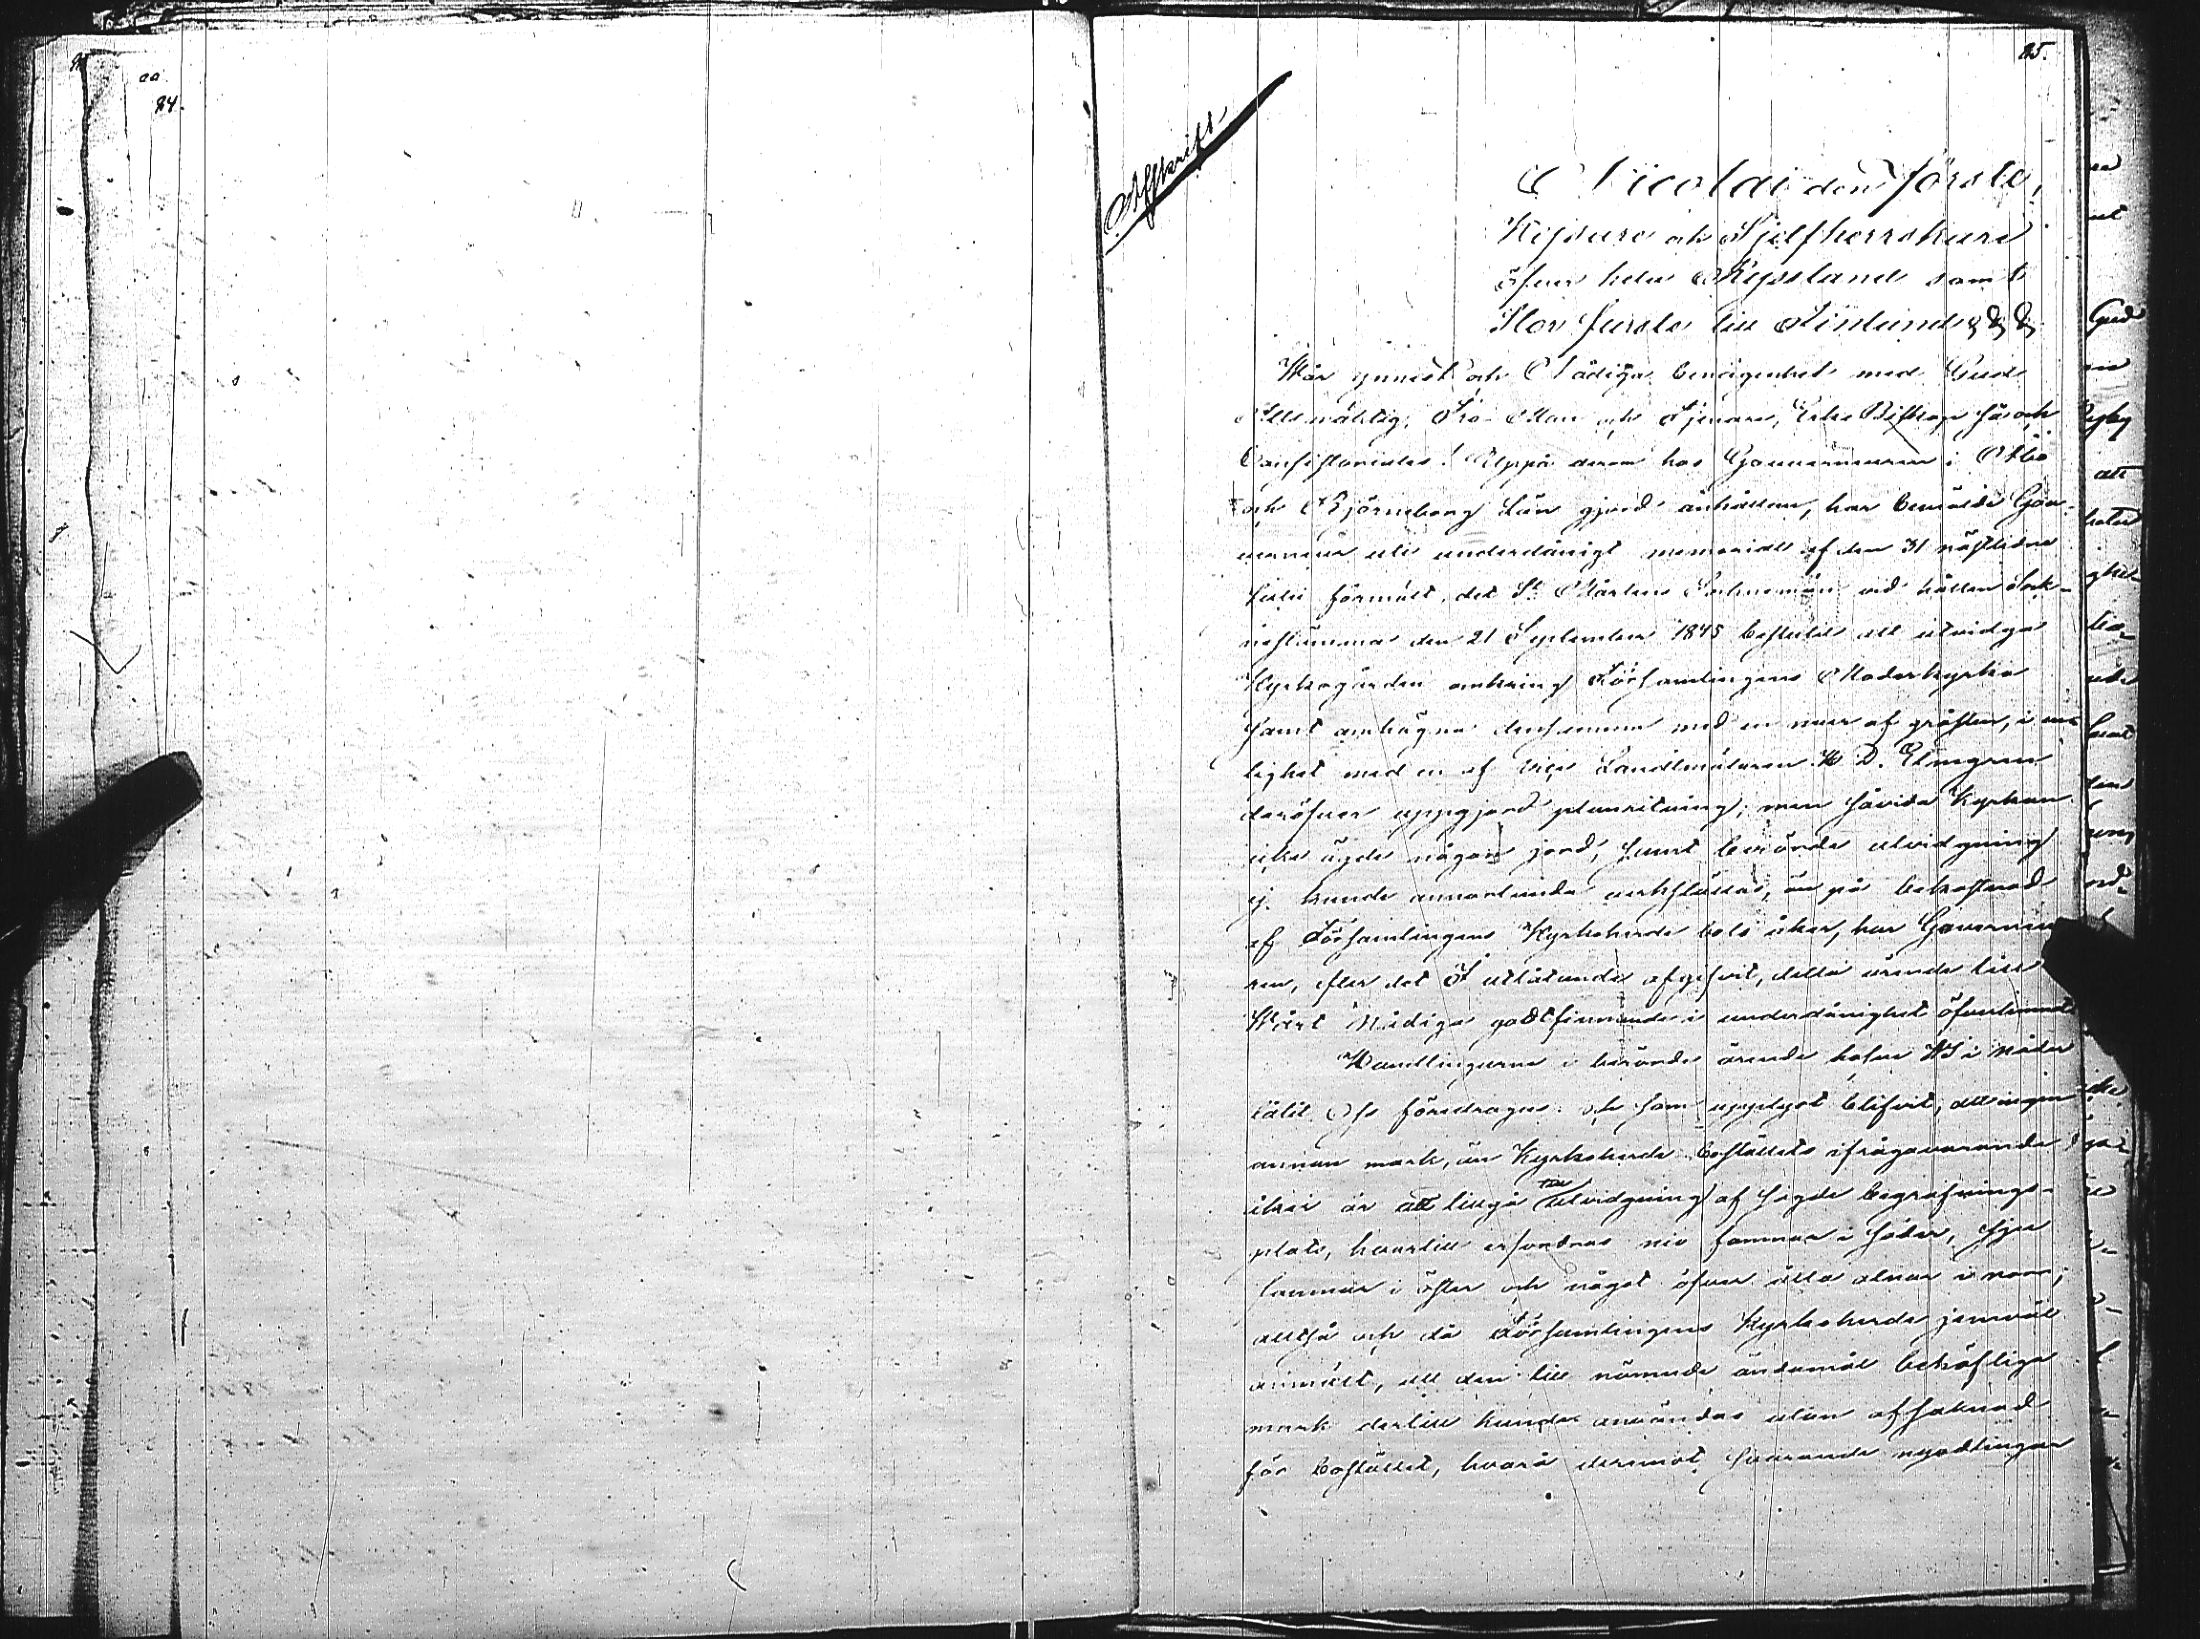 84.
85.
Afskrift
Nicolai den Förste,
Kejsare och Sjelfherrskare
öfver hela Ryssland samt
Stor Furste till Finland &c &c &c
Wår ynnest och Nådiga benägenhet med Gud
Allsmäktig, Tro Man och Tjenare, Erke Biskop så och
Consistoriales! Uppå derom hos Gouverneuren i Åbo
och Björneborg Län gjord anhållan, har bemälde Gou-
verneur uti underdånigt memorial af den 31 nästledne
Julii förmält, det St Mårtens Sockneman vid hållen Sock-
nestämma den 21 September 1845 beslutit att utvidga
Kyrkogården omkring Församlingens Moderkyrka
samt omhägna densamma med en mur af gråsten, i en-
lighet med en af Vice Landtmätaren K D. Elmgren
deröfver uppgjord planritning; men såvida Kyrkan
icke ägde någon jord, samt berörde utvidgning
ej kunde annorlunda verkställas, än på bekostnad
af Församlingens Kyrkoherde bols åker, har Gouverneu
ren, efter det I utlåtande afgifvit, detta ärende till
Wårt Nådiga godtfinnande i underdånighet öfverlemnat
Handlingarne i berörde ärende hafve Wi i nåder
låtit Oss föredragas och som upplyst blifvit, att ingen
annan mark, än Kyrkoherde Boställets ifrågavarande
åker är att tillgå för utvidgning af sagde begrafnings-
plats, hvartill erfordras nio famnar i söder, sju
famnar i öster och något öfver åtta alnar i norr;
alltså och då Församlingens Kyrkoherde jemväl
anmält, att den till nämnde ändamål behöfliga
mark dertill kunde användas utan afsaknad
för Bostället, hvarå deremot svarande nyodlingar